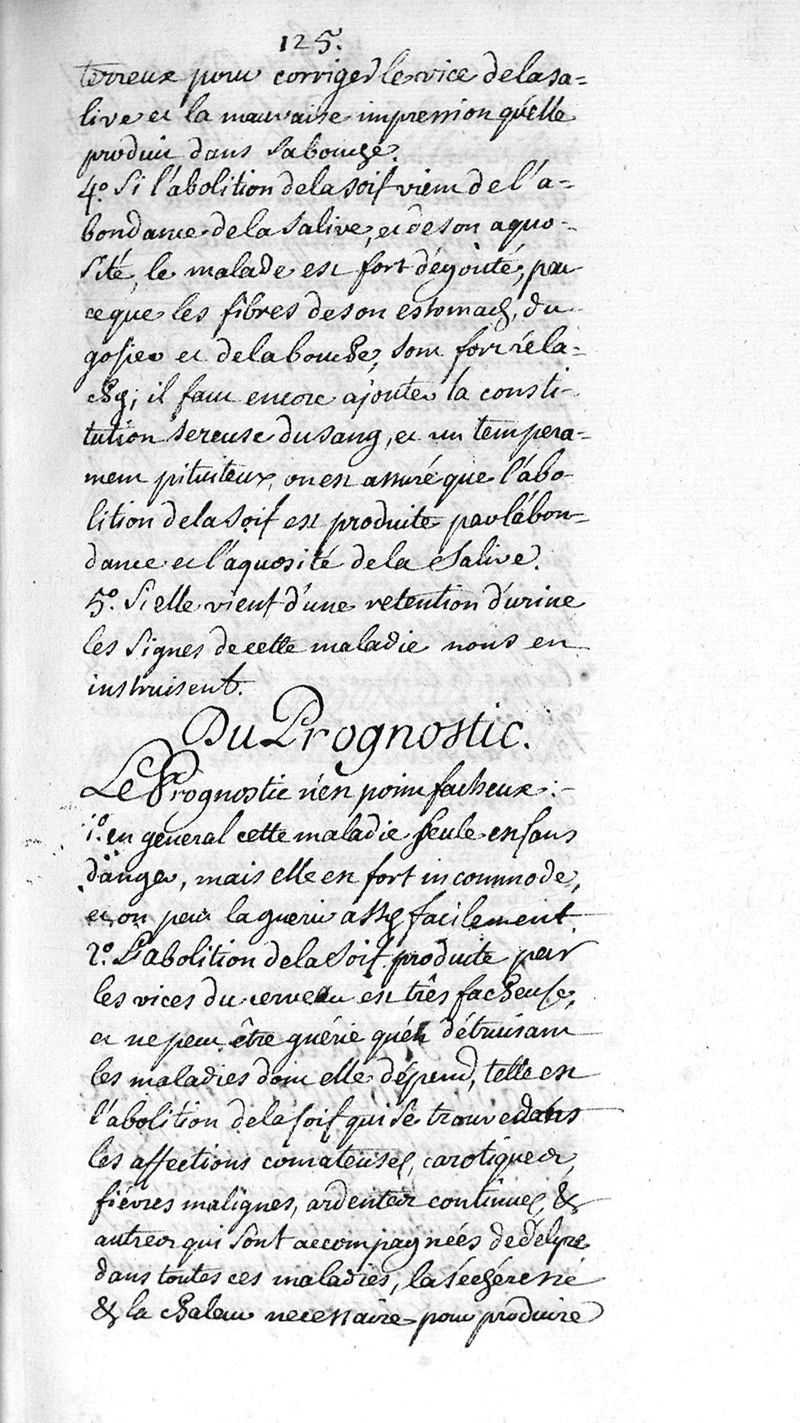 125.
terreux pour corriger le vice de la sa=
live et la mauvaise impression qu'elle
produit dans sa bouche.
4º. Si l'abolition de la soif vient de l'a=
bondance de la salive, et de son aquo-
sité, le malade est fort dégouté, par
ce que les fibres de son estomach, du
gosier et de la bouche, sont fort rela=
chés; il faut encore ajouter la consti-
tution sereuse du sang, et un tempera=
ment pituiteux, on est assuré que l'abo
lition de la soif est produite par l'abon=
dance et l'aquosité de la salive.
5º. Si elle vient d'une retention d'urine
les signes de cette maladie nous en
instruisent.
Du Prognostic.
Le Prognostic n'est point facheux :
1º. en general cette maladie seule est sans
danger, mais elle est fort incommode,
et on peut la guerir assés facilement.
2º. L'abolition de la soif produite par
les vices du cerveau est três facheuse,
et ne peut être guérie qu'en détruisant
les maladies dont elle dépend, telle est
l'abolition de la soif qui se trouve dans
les affections comateuses, carotiques,
fiévres malignes, ardentes continues, &
autres qui sont accompagnées de delyre
dans toutes ces maladies, la sécheresse
& la chaleur necessaire pour produire